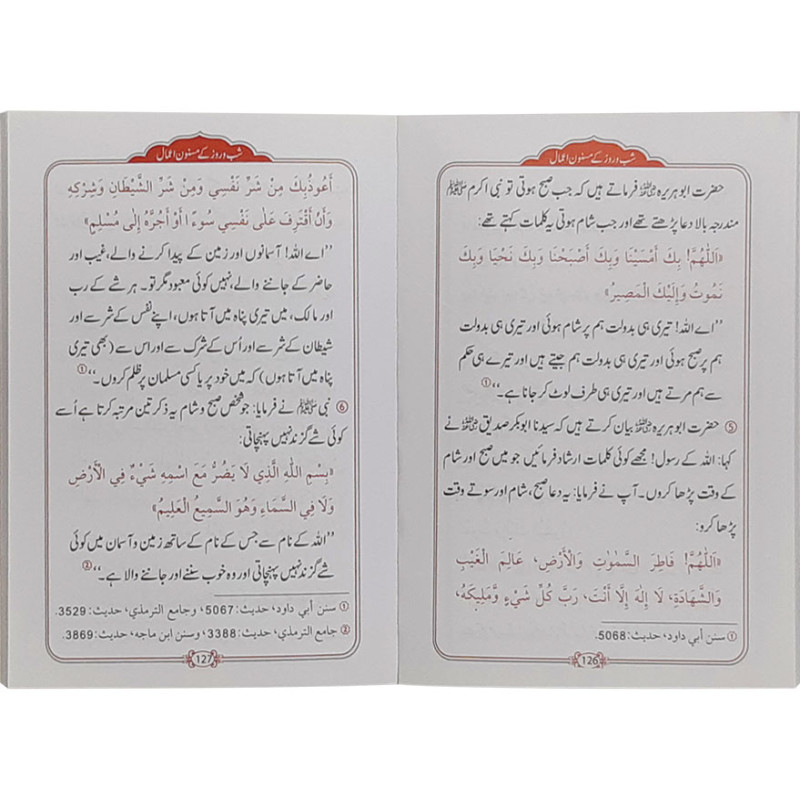 شب و روز کے مسنون اعمال
حضرت ابوہریرہ رضی اللہ عنہ فرماتے ہیں کہ جب صبح ہوتی تو نبی اکرم ﷺ
مندرجہ بالا دعا پڑھتے تھے اور جب شام ہوتی یہ کلمات کہتے تھے:
«اَللّٰهُمَّ! بِكَ أَمْسَيْنَا وَبِكَ أَصْبَحْنَا وَبِكَ نَحْيَا وَبِكَ
نَمُوتُ وَإِلَيْكَ الْمَصِيرُ»
’’اے اللہ! تیری ہی بدولت ہم پر شام ہوئی اور تیری ہی بدولت
ہم پر صبح ہوئی اور تیری ہی بدولت ہم جیتے ہیں اور تیرے ہی حکم
سے ہم مرتے ہیں اور تیری ہی طرف لوٹ کر جانا ہے۔‘‘①
⑤ حضرت ابوہریرہ رضی اللہ عنہ بیان کرتے ہیں کہ سیدنا ابوبکر صدیق رضی اللہ عنہ نے
کہا: اللہ کے رسول! مجھے کوئی کلمات ارشاد فرمائیں جو میں صبح اور شام
کے وقت پڑھا کروں۔ آپ نے فرمایا: یہ دعا صبح، شام اور سوتے وقت
پڑھا کرو:
«اَللّٰهُمَّ! فَاطِرَ السَّمٰوٰتِ وَالْأَرْضِ، عَالِمَ الْغَيْبِ
وَالشَّهَادَةِ، لَا إِلٰهَ إِلَّا أَنْتَ، رَبَّ كُلِّ شَيْءٍ وَّمَلِيكَهُ،
① سنن أبي داود، حديث: 5068.
126
شب و روز کے مسنون اعمال
أَعُوذُبِكَ مِنْ شَرِّ نَفْسِي وَمِنْ شَرِّ الشَّيْطَانِ وَشِرْكِهِ
وَأَنْ أَقْتَرِفَ عَلٰى نَفْسِي سُوءًا أَوْ أَجُرَّهُ إِلٰى مُسْلِمٍ»
’’اے اللہ! آسمانوں اور زمین کے پیدا کرنے والے، غیب اور
حاضر کے جاننے والے، نہیں کوئی معبود مگر تو۔ ہر شے کے رب
اور مالک، میں تیری پناہ میں آتا ہوں، اپنے نفس کے شر سے اور
شیطان کے شر سے اور اُس کے شرک سے اور اس سے (بھی تیری
پناہ میں آتا ہوں) کہ میں خود پر یا کسی مسلمان پر ظلم کروں۔‘‘①
⑥ نبی ﷺ نے فرمایا: جو شخص صبح و شام یہ ذکر تین مرتبہ کرتا ہے اُسے
کوئی شے گزند نہیں پہنچاتی:
«بِسْمِ اللّٰهِ الَّذِي لَا يَضُرُّ مَعَ اسْمِهِ شَيْءٌ فِي الْأَرْضِ
وَلَا فِي السَّمَاءِ وَهُوَ السَّمِيعُ الْعَلِيمُ»
’’اللہ کے نام سے جس کے نام کے ساتھ زمین و آسمان میں کوئی
شے گزند نہیں پہنچاتی اور وہ خوب سننے اور جاننے والا ہے۔‘‘②
① سنن أبي داود، حديث: 5067، وجامع الترمذي، حديث: 3529.
② جامع الترمذي، حديث: 3388، وسنن ابن ماجه، حديث: 3869.
127